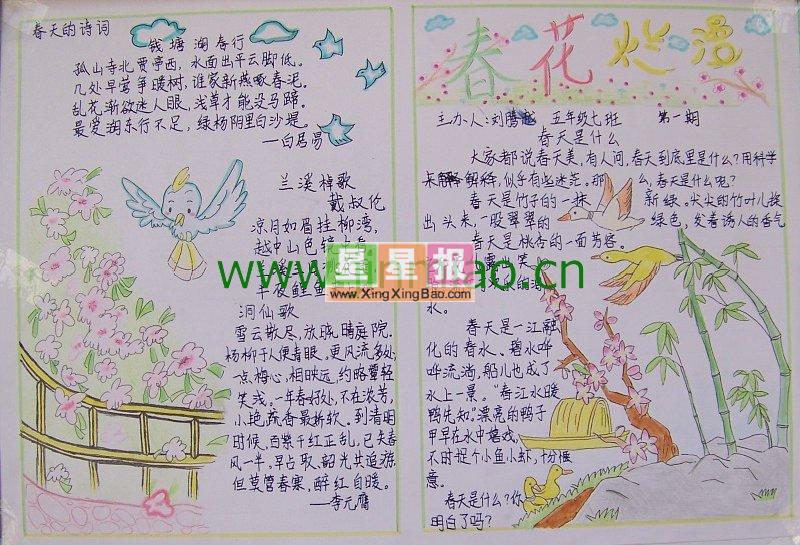 春天的诗词
钱塘湖春行
孤山寺北贾亭西，水面出平云脚低。
几处早莺争暖树，谁家新燕啄春泥。
乱花渐欲迷人眼，浅草才能没马蹄。
最爱湖东行不足，绿杨阴里白沙堤。
—白居易
兰溪棹歌
戴叔伦
凉月如眉挂柳湾，
越中山色镜
半夜鲤鱼
洞仙歌
雪云散尽，放晓晴庭院.
杨柳于人便青眼。更风流多处，
一点梅心，相映远，约略颦轻
笑浅。一年春好处，不在浓芳，
小艳疏香最娇软。到清明
时候，百紫千红正乱，已失春
风一半。早占取、韶光共追游，
但莫管春寒，醉红自暖。
—李元膺
春花烂漫
主办人：刘腾越 五年级七班 第一期
春天是什么
大家都说春天美，有人问，春天到底里是什么？用科学
解释，似乎有些迷茫。那么，春天是什么呢？
春天是竹子的一抹新绿。尖尖的竹叶儿探
出头来，一股翠翠的绿色，发着诱人的香气
春天是桃杏的一面芳容。
露出笑
水。
春天是一江融
化的春水、碧水哗
哗流淌，船儿也成了
水上一景。“春江水暖
鸭先知。”漂亮的鸭子
早早在水中嬉戏，
不时捉个小鱼小虾，十分惬
意。
春天是什么？你
明白了吗？
www.bao.cn
星星报
www.XingXingBao.com